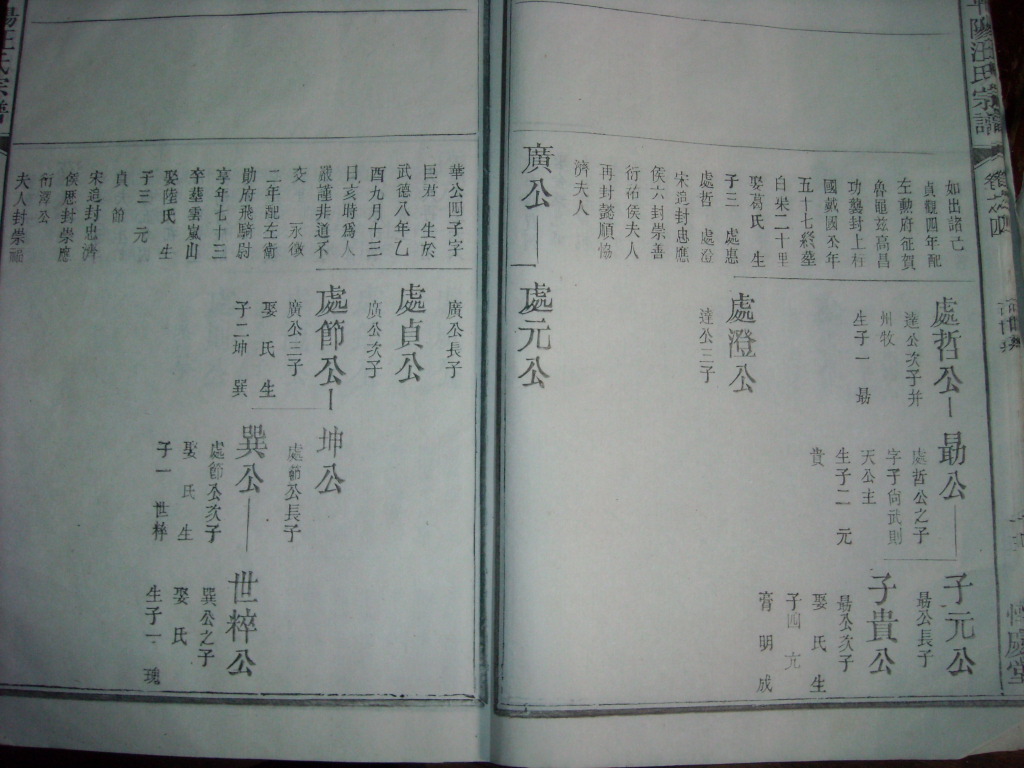 陽汪氏宗譜
如出諸己
貞觀四年配
左勳府征賀
魯龜玆高昌
功襲封上柱
國戴國公年
五十七終墓
白果二十里
娶葛氏 生
子三 處惠
處哲 處澄
宋追封忠應
侯六封崇善
衍祐侯夫人
再封懿順協
濟夫人
處哲公
達公次子并
州牧
生子一 勗
勗公
處哲公之子
字子尚武則
天公主
生子二 元
貴
子元公
勗公長子
子貴公
勗公次子
娶 氏 生
子四 充
膏 明 成
處澄公
達公三子
廣公
處元公
華公四子字
巨君 生於
武德八年乙
酉九月十三
日亥時為人
嚴謹非道不
交 永徽
二年配左衛
勛府飛騎尉
享年七十三
卒葬雲嵐山
娶陸氏 生
子三 元
貞 節
宋追封忠濟
侯歷封崇應
衍澤公
夫人封崇福
廣公長子
處貞公
廣公次子
處節公
廣公三子
娶 氏 生
子二 坤 巽
坤公
處節公長子
巽公
處節公次子
娶 氏 生
子一 世粹
世粹公
巽公之子
娶 氏
生子一 瑰
陽汪氏宗譜